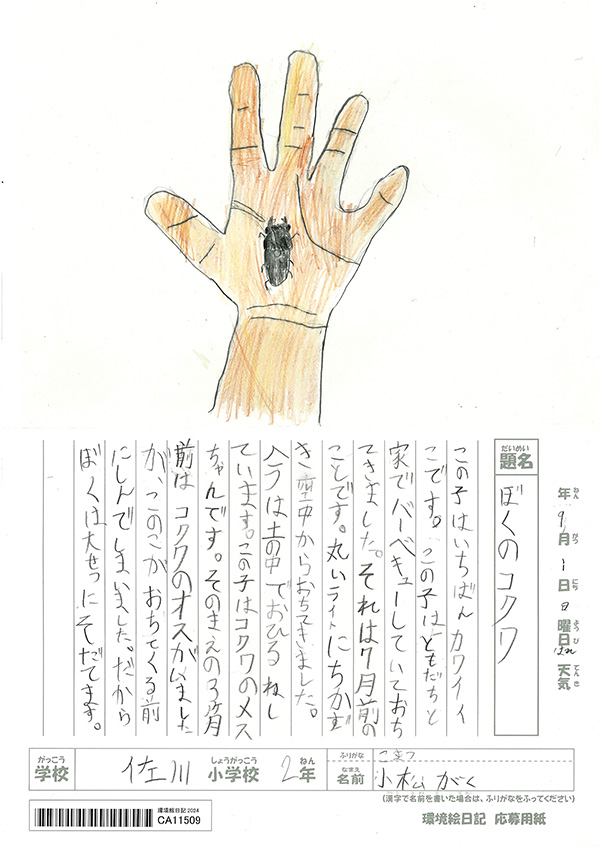 年ねん 9月がつ 1日にち 日曜日ようび はれ 天気てんき
題名だいめい ぼくのコクワ
この子はいちばんカワイイ
こです。この子はともだちと
家でバーベキューしていておち
てきました。それは7月前の
ことです。丸いライトにちかず
き空中からおちてきました。
今は土の中でおひるねし
ています。この子はコクワのメス
ちゃんです。そのまえの3ヶ月
前はコクワのオスがいました
が、このこがおちてくる前
にしんでしまいました。だから
ぼくは大せつにそだてます。
がっこう しょうがっこう ねん ふりがな こまつ
学校 佐川 小学校 2年 なまえ 名前 小松 がく
(漢字で名前を書いた場合は、ふりがなをふってください)
環境絵日記 2024
CA11509
環境絵日記 応募用紙